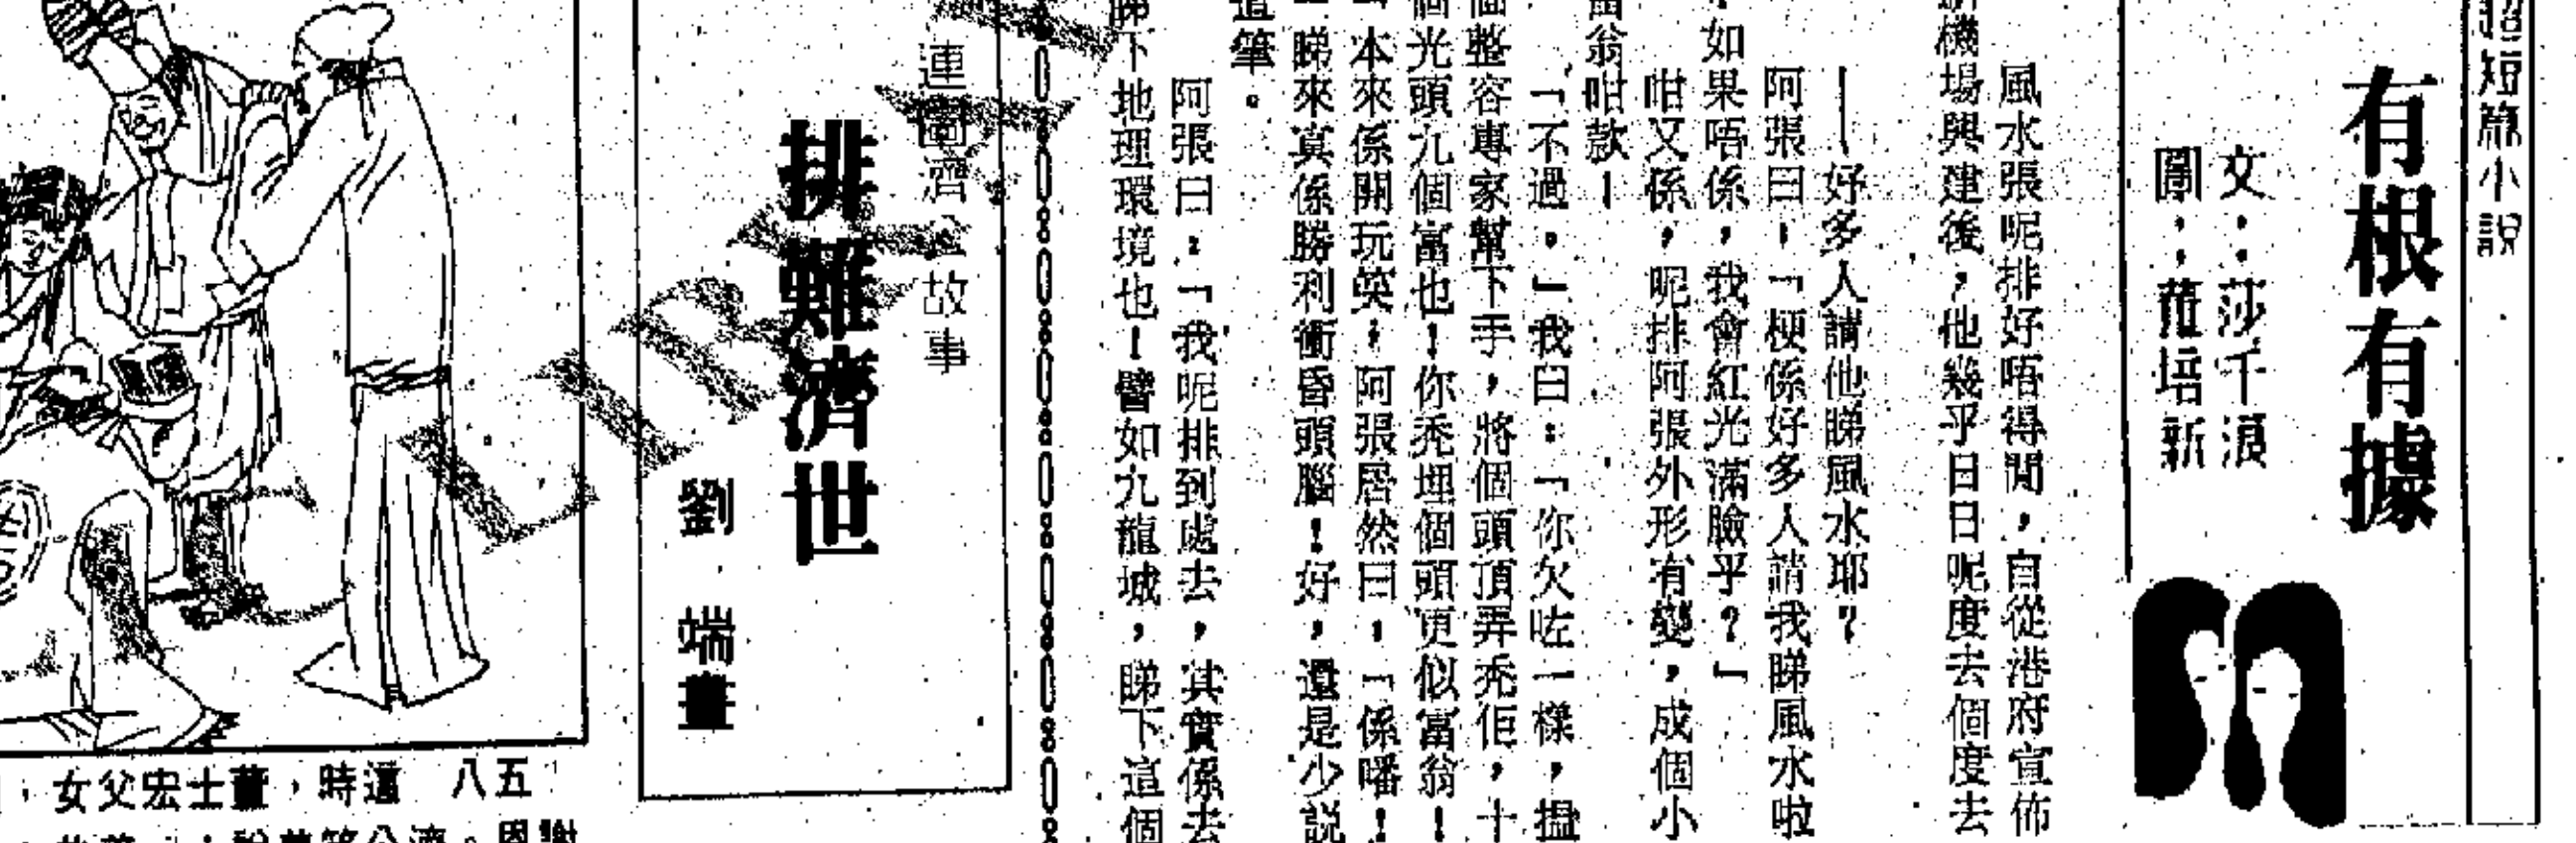 超短篇小說
有根有據
文：莎千浪
圖：范培新
風水張呢排好唔得閒，自從港府宣佈
新機場興建後，他幾乎日日呢度去個度去
——好多人請他睇風水耶？
阿張曰：「梗係好多人請我睇風水啦
！如果唔係，我會紅光滿臉乎？」
咁又係，呢排阿張外形有變，成個小
富翁咁款！
「不過，」我曰：「你欠咗一樣，搵
個整容專家幫下手，將個頭頂弄禿佢，十
個光頭九個富也！你禿埋個頭更似富翁！
」本來係開玩笑，阿張居然曰：「係噃！
」睇來真係勝利衝昏頭腦！好，還是少說
這筆。
阿張曰：「我呢排到處去，其實係去
睇下地理環境也！譬如九龍城，睇下這個
連圖濟公故事
排難濟世
劉端畫
五八 這時，董士宏父女
謝恩。濟公笑